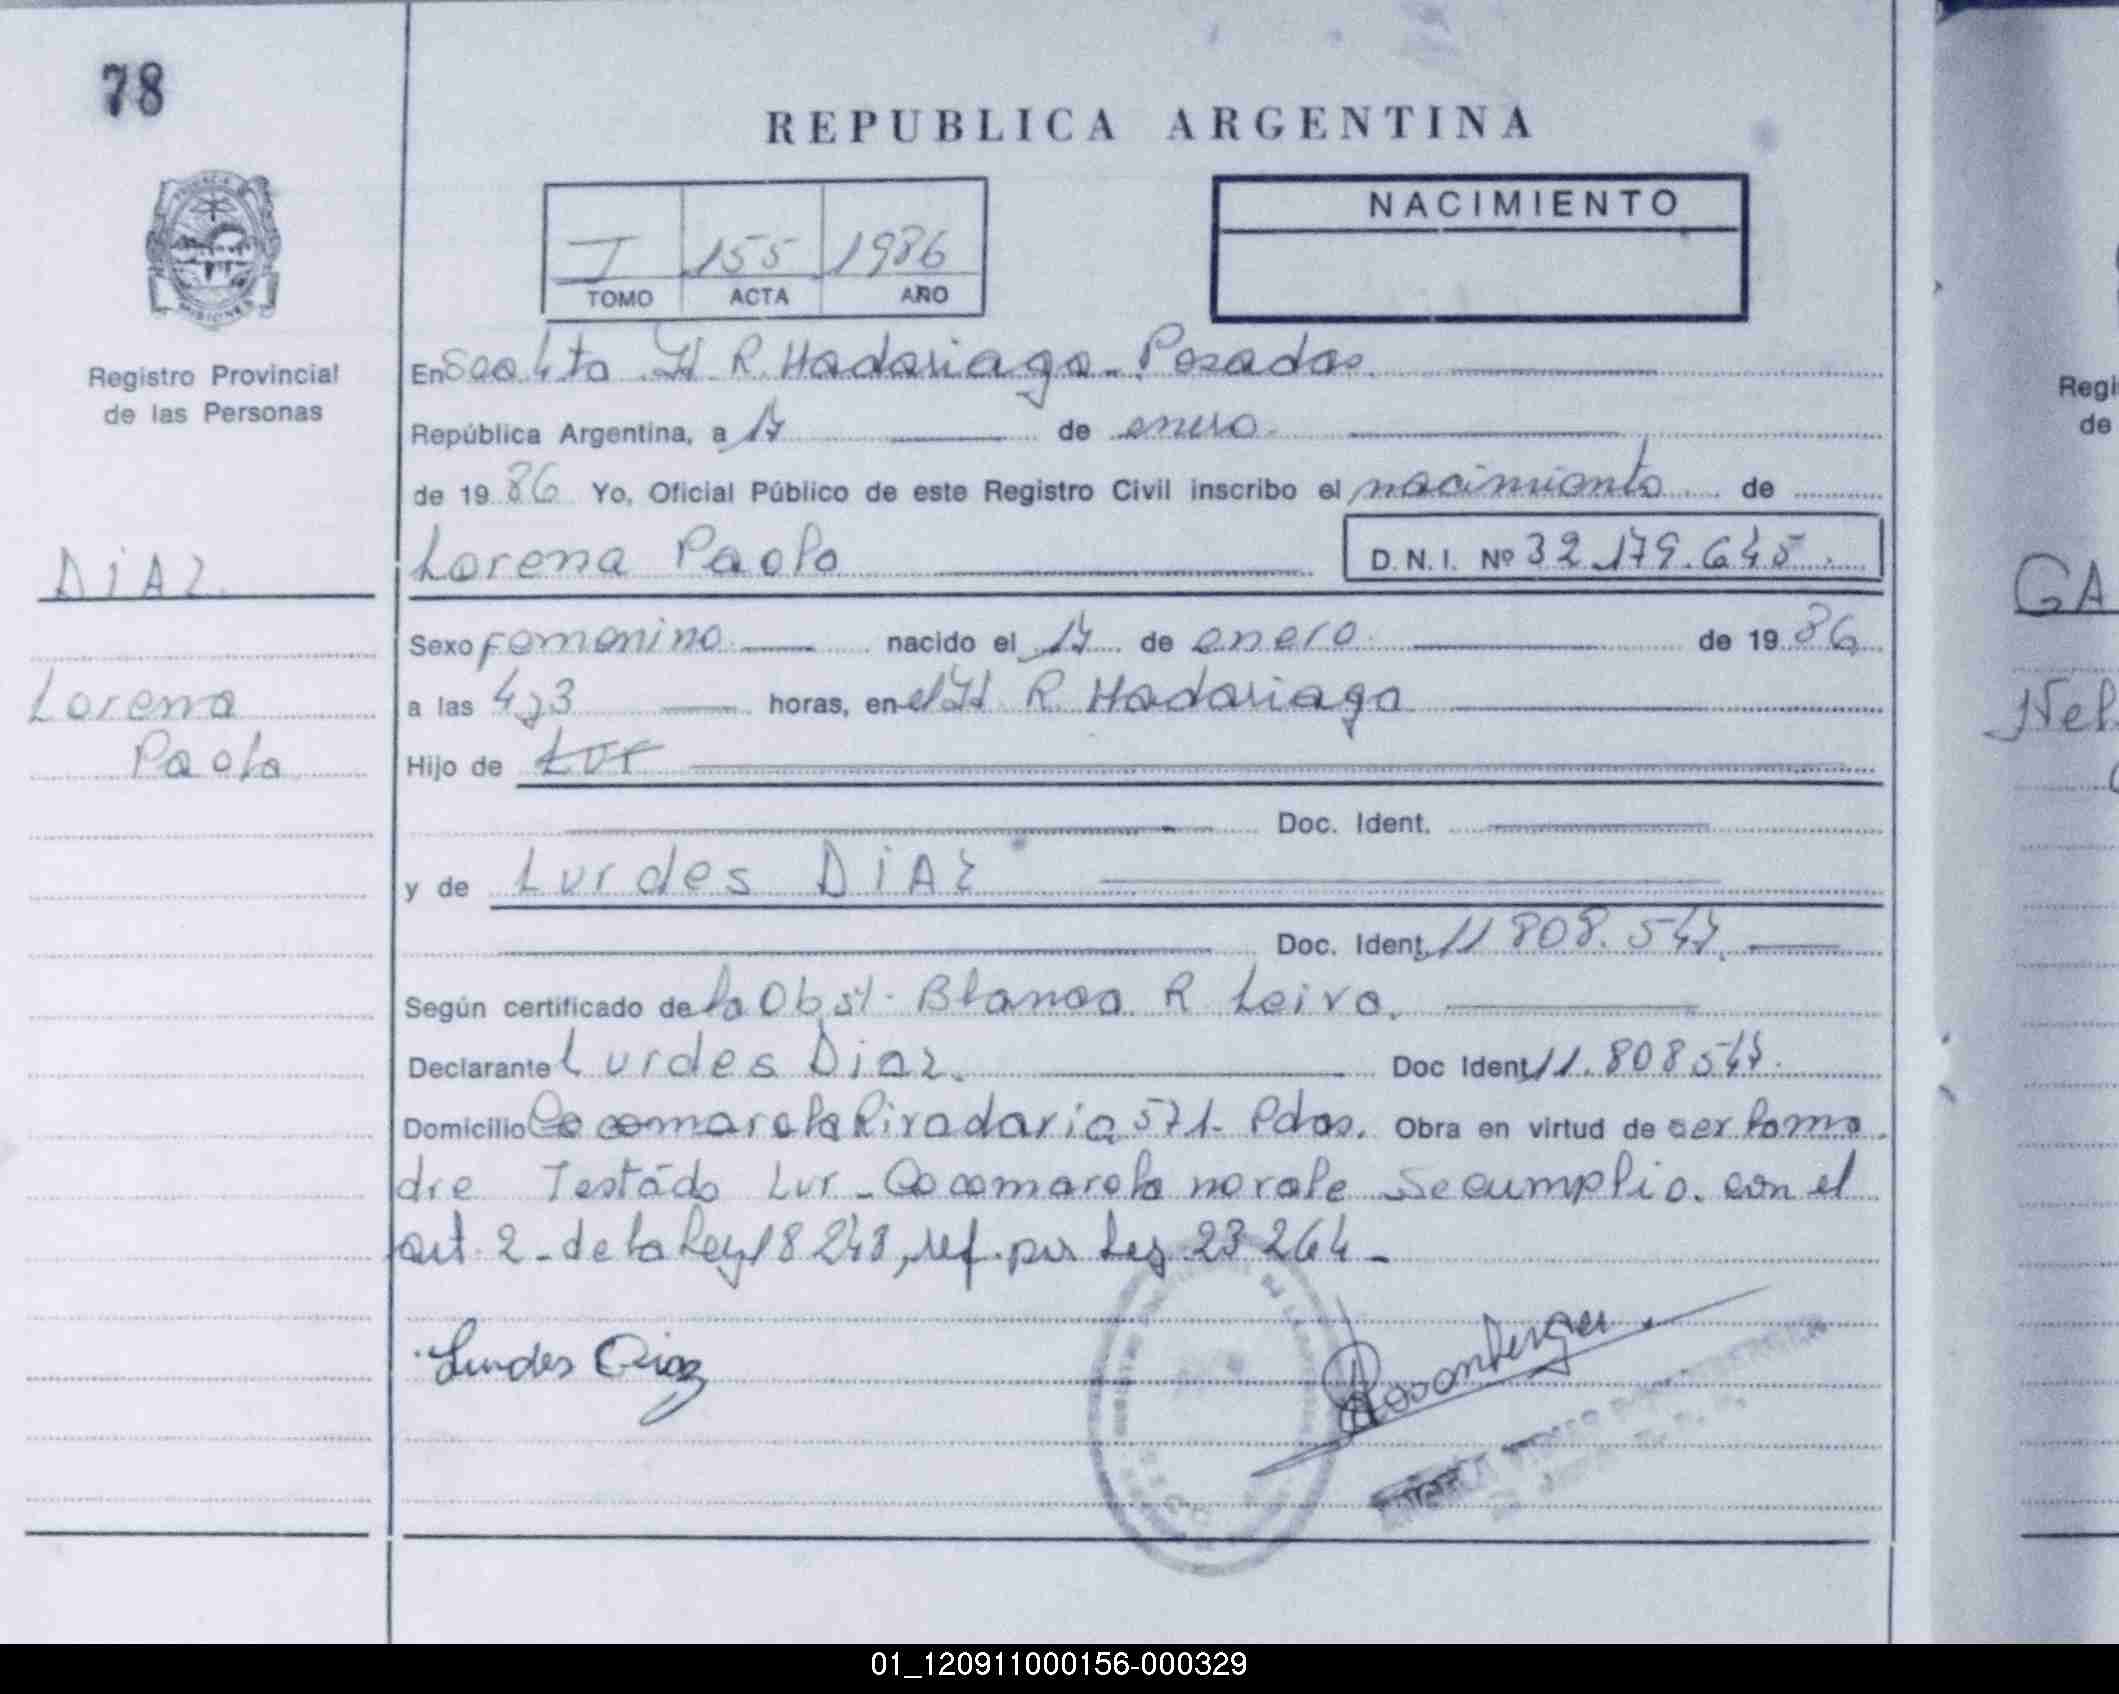 78
REPUBLICA ARGENTINA
NACIMIENTO
I 155 1986
TOMO ACTA AÑO
Registro Provincial
de las Personas
DIAZ
Lorena
Paola
En Secc 4ta H. R. Madariaga - Posadas.
República Argentina, a 17 de enero
de 1986 Yo, Oficial Público de este Registro Civil inscribo el nacimiento de
Lorena Paola D.N.I. Nº 32.179.645.
Sexo femenino nacido el 17 de enero de 1986
a las 4,3 horas, en el H R. Madariaga
Hijo de Lur
Doc. Ident.
y de Lurdes DIAZ
Doc. Ident. 11 808.547
Según certificado de la Obst. Blanca R Leiva.
Declarante Lurdes Diaz. Doc Ident 11.808547.
Domicilio Cocomarola Rivadavia 571. Pdas. Obra en virtud de ser la ma
dre Testado Lur - Cocomarola no vale Se cumplio. con el
art. 2 - de la Ley 18 248, ref. por Ley 23 264 -
Lurdes Diaz
Rosenberger
Regi
de
GA
Nel
01_120911000156-000329